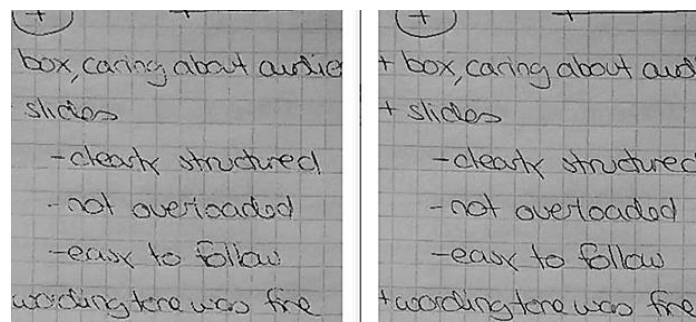 +
box, caring about audie
slides
- clearly structured
- not overloaded
- easy to follow
wording tone was fine
+
+ box, caring about aud
+ slides
- clearly structured
- not overloaded
- easy to follow
+ wording tone was fine